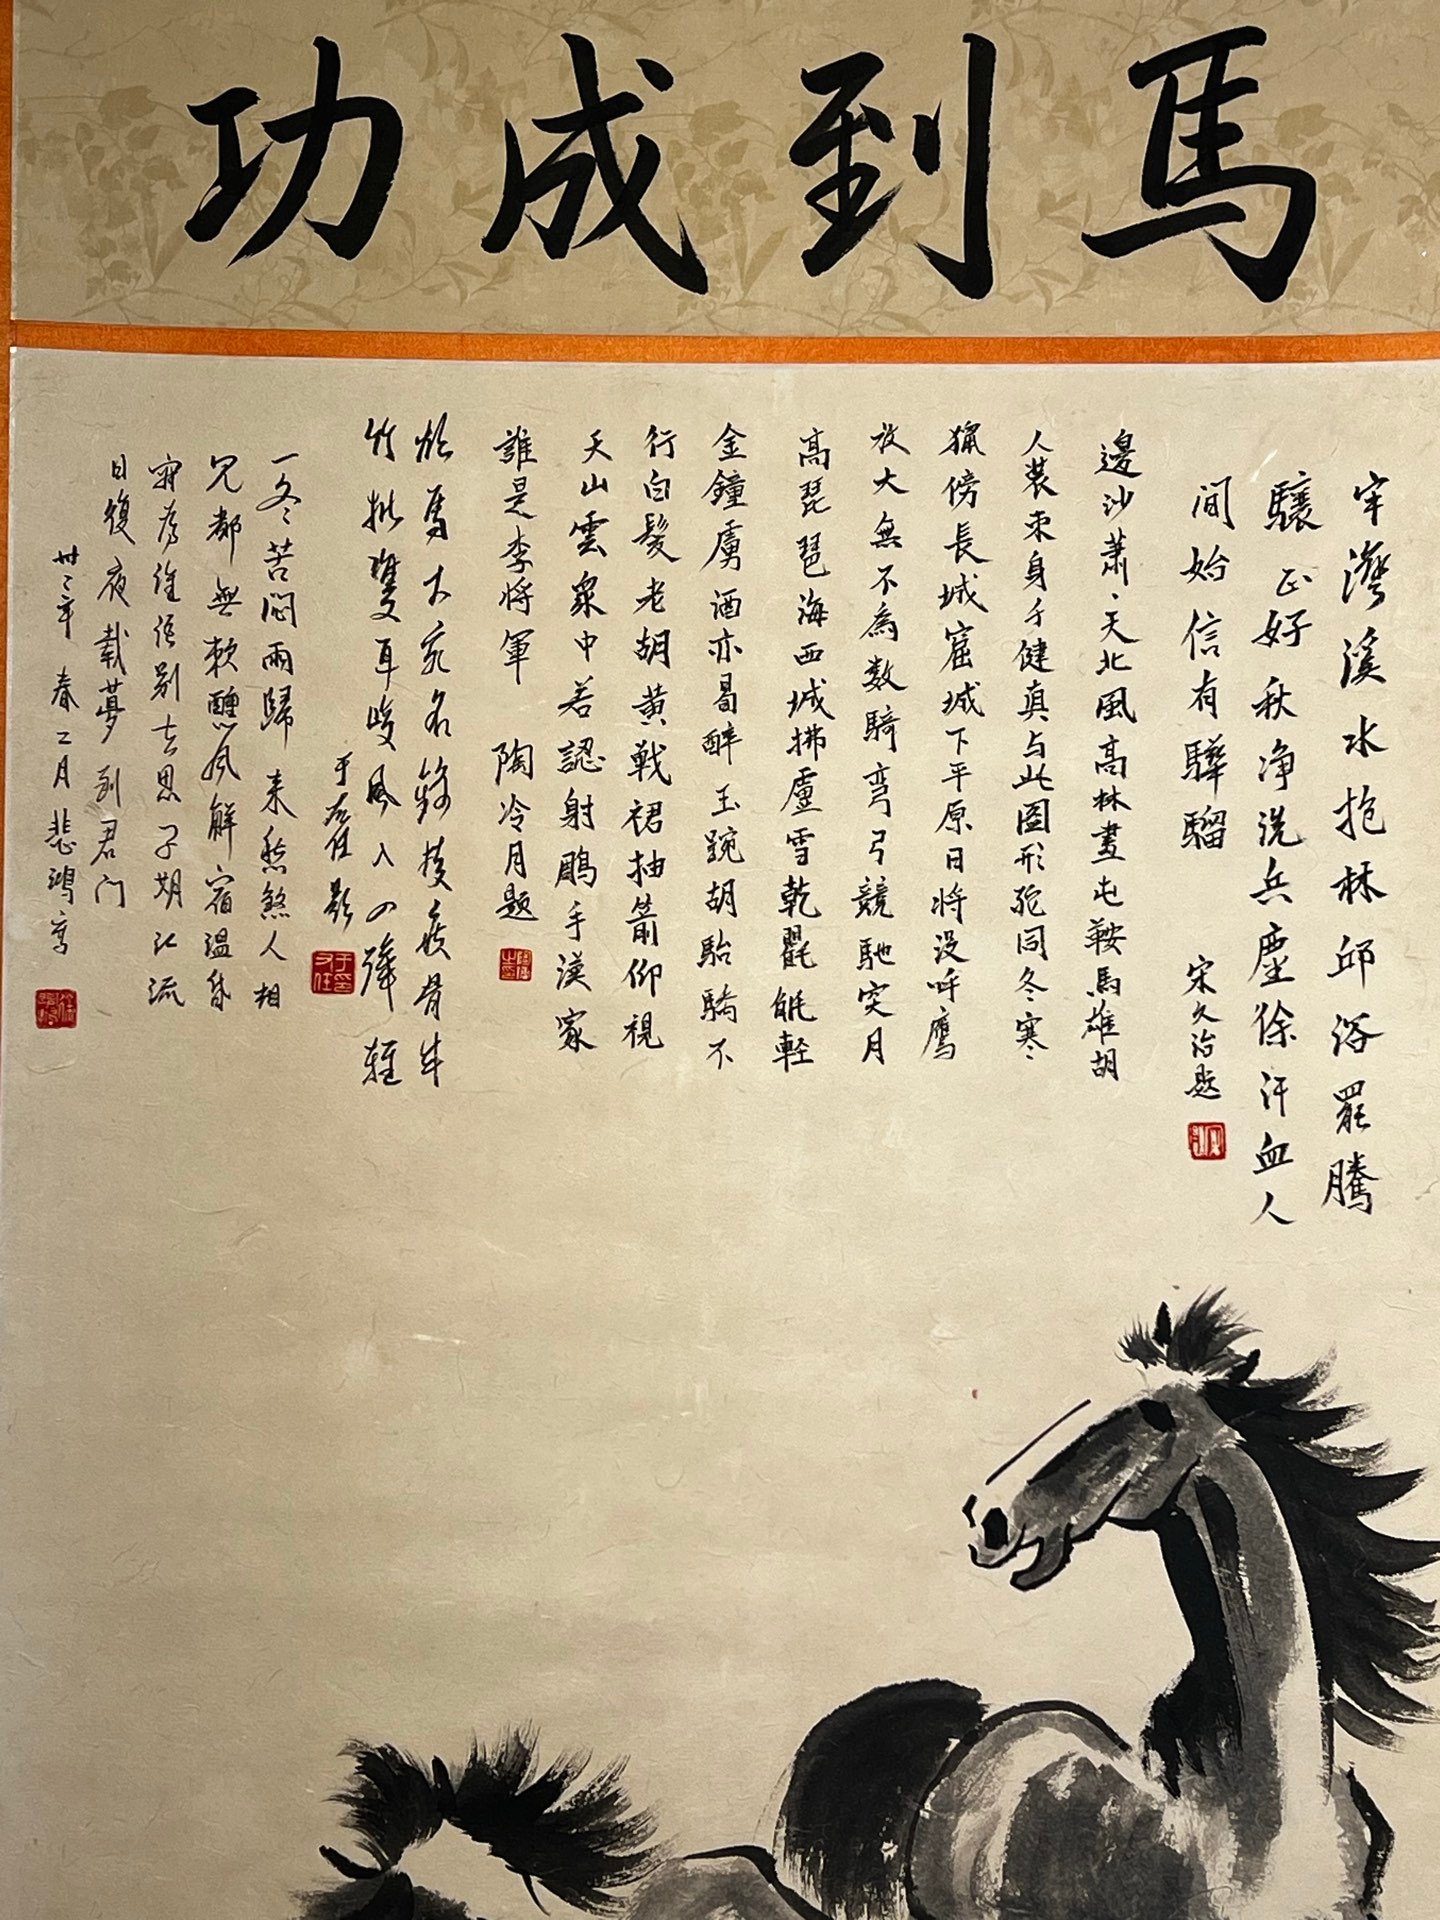 馬到成功
牢灣溪水抱林邱浴罷騰
驤正好秋净洗兵塵徐汗血人
間始信有驊騮 宋久治題
邊沙蕭〻天北風高林晝屯鞍馬雄胡
人装束身手健真与此图形驼同冬寒
獵傍長城窟城下平原日将没呼鷹
放犬無不為数騎弯弓競馳突月
高琵琶海西城拂廬雪乾氍毹軽
金鐘虜酒亦曷醉玉踠胡駘驕不
行白髮老胡黄戦裙抽箭仰視
天山雲衆中若認射鵰手漢家
誰是李将軍 陶冷月題
馬大宛名鋒棱瘦骨成
竹批雙耳峻風入四蹄輕
于右任題
一冬苦悶雨歸来愁煞人相
見都無款醺夙解宿温存
誰語别去思子期江流
日復夜載夢到君门
卅二年春二月悲鴻寫